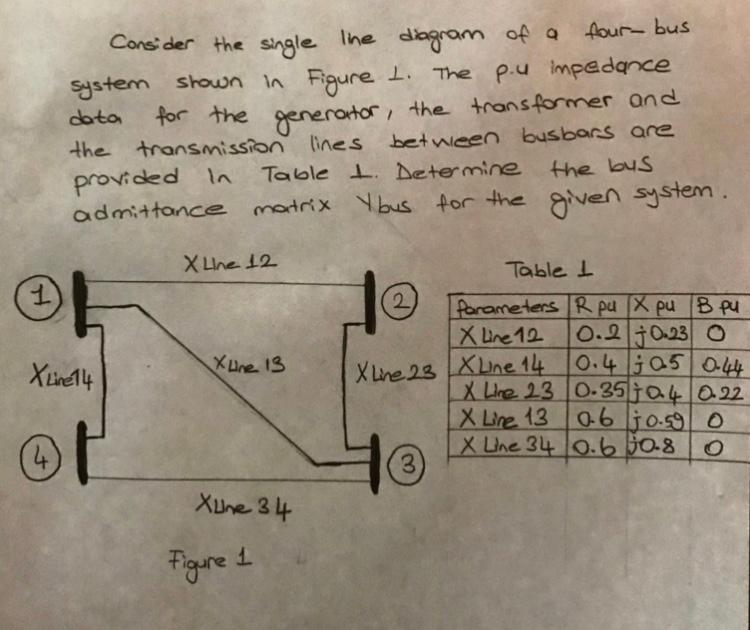 Consider the single line diagram of a four-bus
system shown in Figure 1. The p.u impedance
data for the generator, the transformer and
the transmission lines between busbars are
provided in Table 1. Determine the bus
admittance matrix Ybus for the given system.
XLine 12
Table 1
1
2
Parameters R pu X pu B pu
X Line 12 0.2 j0.23 0
XLine14
XLine 13
XLine 23
X Line 14 0.4 j0.5 0.44
X Line 23 0.35 j0.4 0.22
X Line 13 0.6 j0.59 0
X Line 34 0.6 j0.8 0
4
3
XLine 34
Figure 1